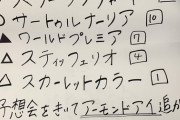 サートゥルナーリア 10
▲ワールドプレミア 7
△スティッフェリオ 4
△スカーレットカラー 1
予想会をきいてアーモンドアイ追が